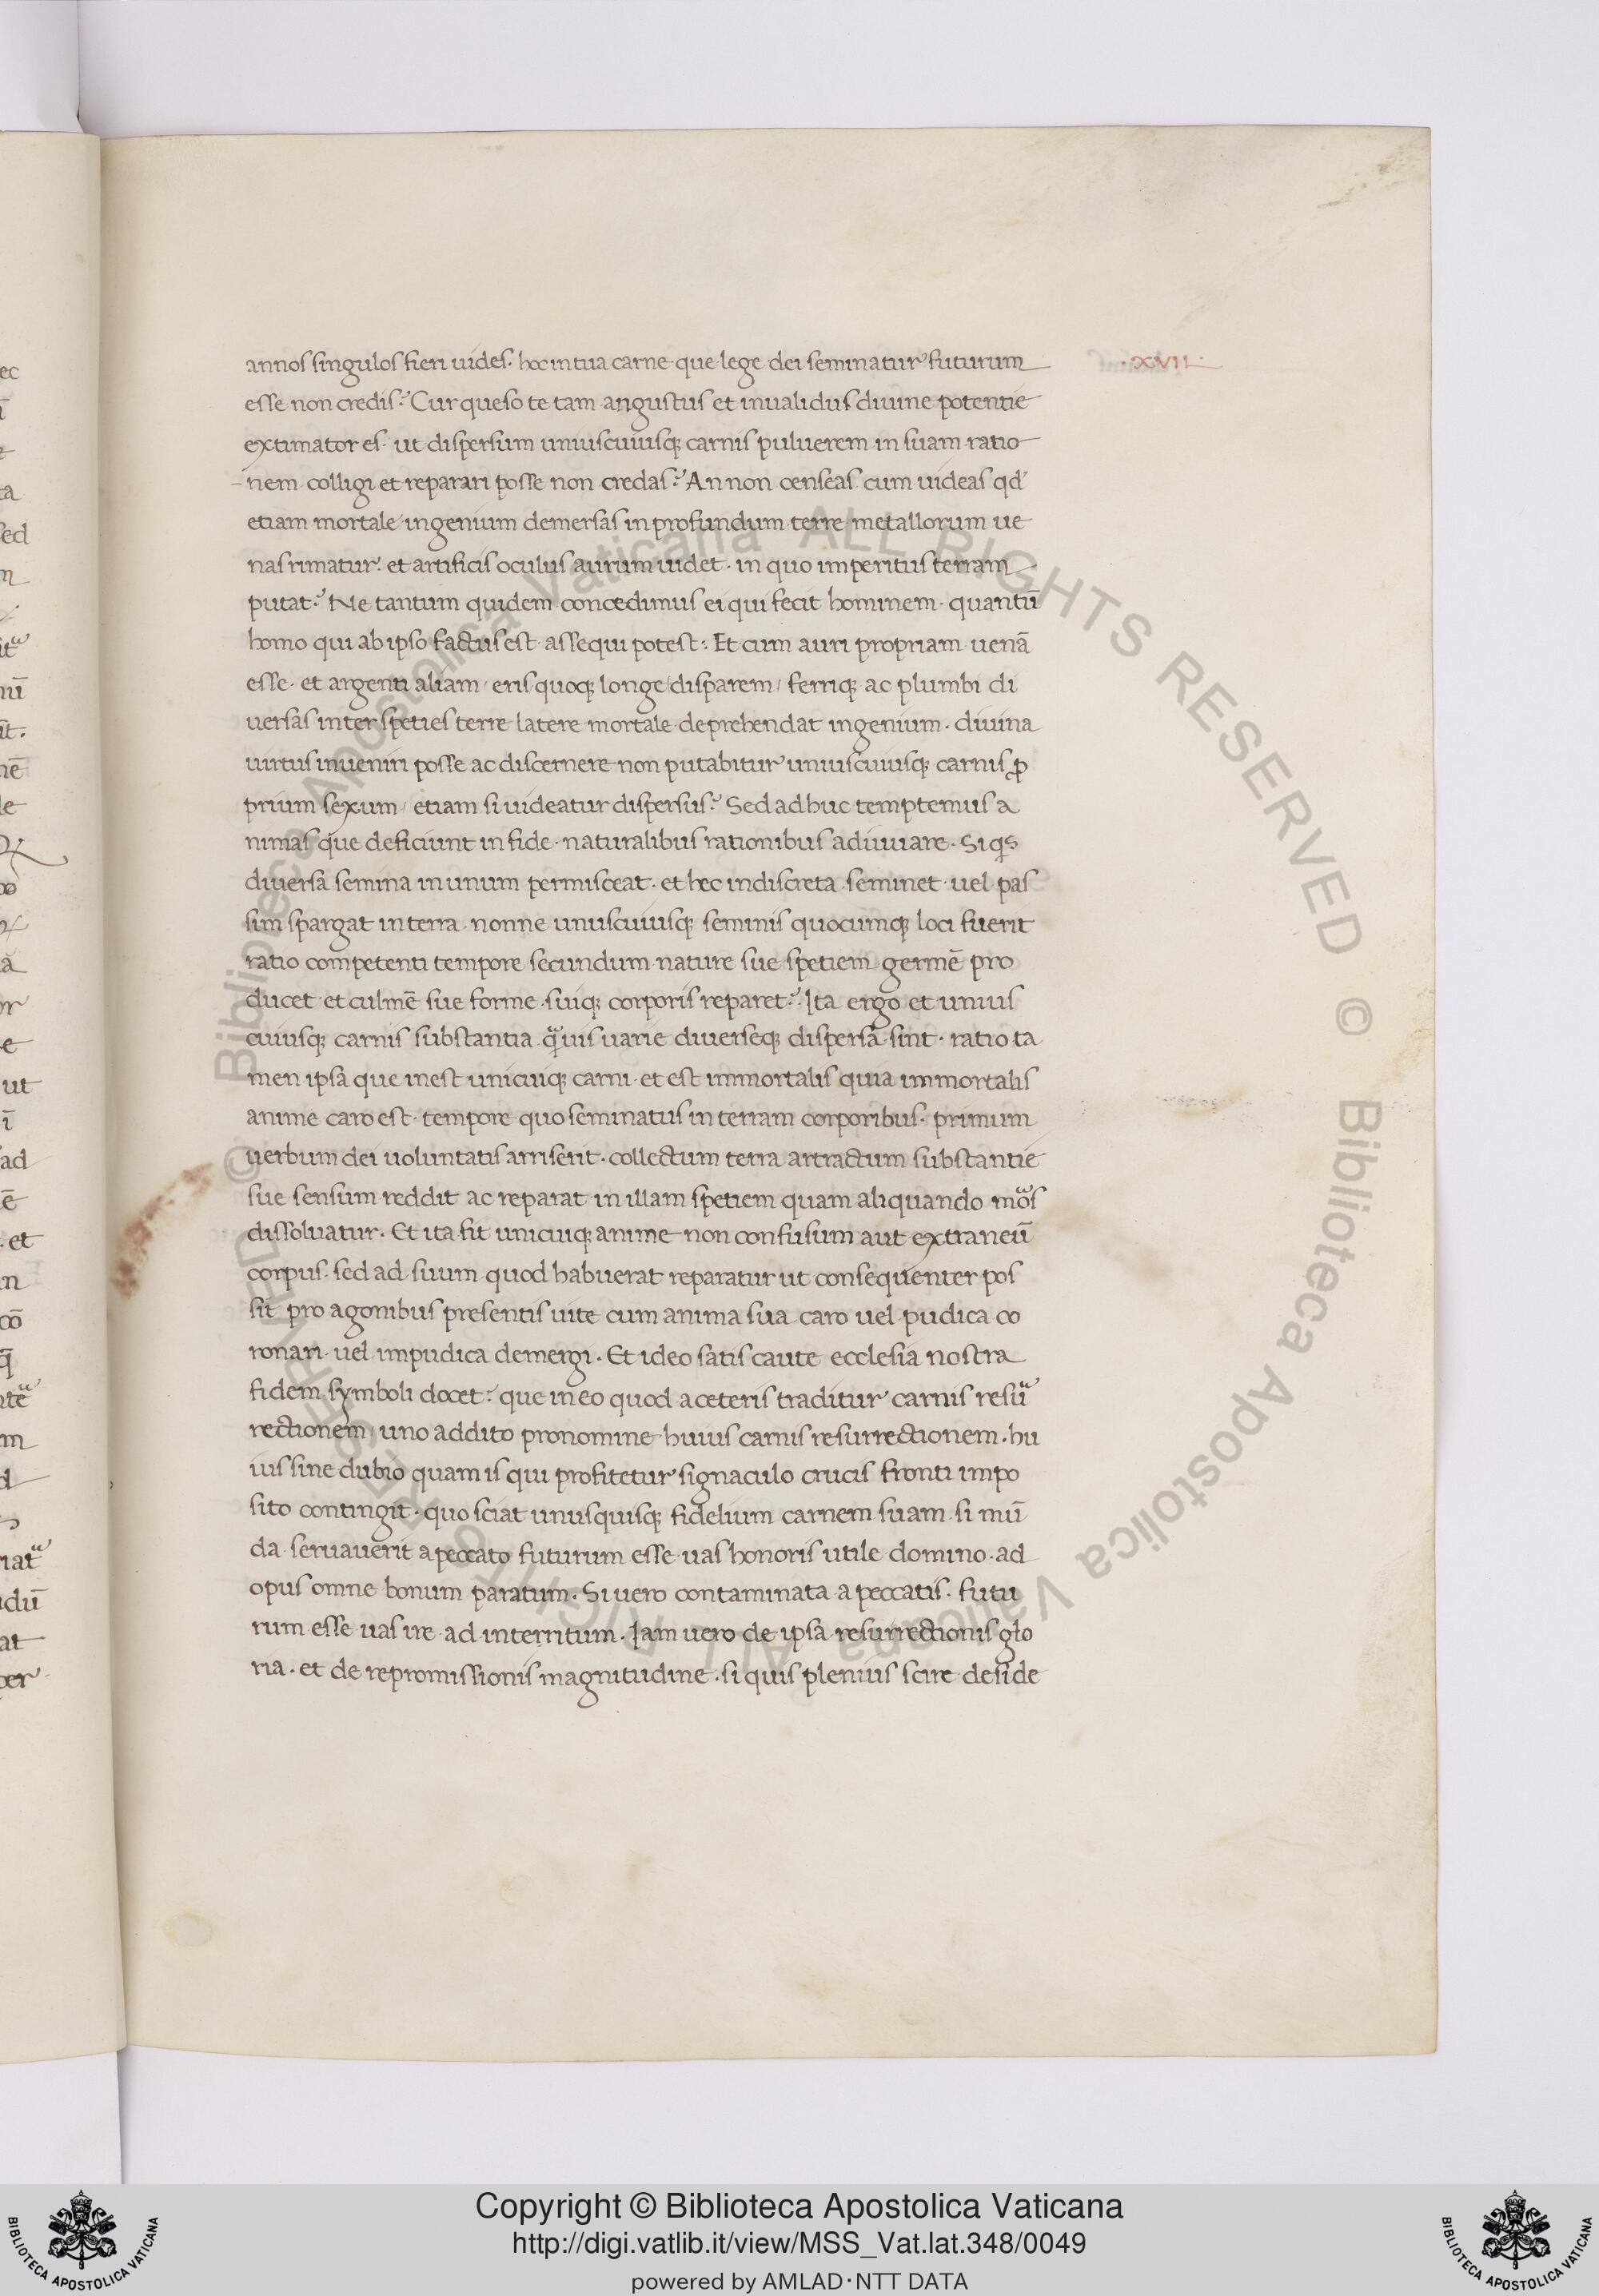 annos singulos fieri uides. hoc in tua carne que lege dei seminatur futurum
·XVII·
esse non credis? Cur queso te tam angustus et inualidus diuine potentie
extimator es. ut dispersum uniuscuiusq; carnis puluerem in suam ratio
nem colligi et reparari posse non credas? An non censeas cum uideas qd
etiam mortale ingenium demersas in profundum terre metallorum ue
nas rimatur. et artificis oculus aurum uidet. in quo imperitus terram
putat? Ne tantum quidem concedimus ei qui fecit hominem. quantū
homo qui ab ipso factus est assequi potest: Et cum auri propriam uenā
esse. et argenti aliam/ eris quoq; longe disparem/ ferriq; ac plumbi di
uersas inter speties terre latere mortale deprehendat ingenium. diuina
uirtus inueniri posse ac discernere non putabitur uniuscuiusq; carnis ꝓ
prium sexum/ etiam si uideatur dispersus? Sed adhuc temptemus a
nimas que deficiunt in fide. naturalibus rationibus adiuuare. Si qs
diuersa semina in unum permisceat. et hec indiscreta seminet uel pas
sim spargat in terra. nonne uniuscuiusq; seminis quocumq; loci fuerit
ratio competenti tempore secundum nature sue spetiem germē pro
ducet et culmē sue forme suiq; corporis reparet? Ita ergo et unius
cuiusq; carnis substantia qᵃuis uarie diuerseq; dispersa sint. ratio ta
men ipsa que inest unicuiq; carni. et est immortalis quia immortalis
anime caro est. tempore quo seminatus in terram corporibus. primum
uerbum dei uoluntatis arriserit. collectum terra artractum substantie
sue sensum reddit ac reparat in illam spetiem quam aliquando moᵃs
dissoluatur. Et ita fit unicuiq; anime non confusum aut extraneū
corpus. sed ad suum quod habuerat reparatur ut consequenter pos
sit pro agonibus presentis uite cum anima sua caro uel pudica co
ronari uel impudica demergi. Et ideo satis caute ecclesia nostra
fidem symboli docet: que in eo quod a ceteris traditur carnis resuᵃ
rectionem/ uno addito pronomine huius carnis resurrectionem. hu
ius sine dubio quam is qui profitetur signaculo crucis fronti impo
sito contingit. quo sciat unusquisq; fidelium carnem suam si mū
da seruauerit a peccato futurum esse uas honoris utile domino. ad
opus omne bonum paratum. Si uero contaminata a peccatis. futu
rum esse uas ire ad interritum. Iam uero de ipsa resurrectionis glo
ria. et de repromissionis magnitudine. si quis plenius scire deside
© Biblioteca Apostolica Vaticana ALL RIGHTS RESERVED © Biblioteca Apostolica Vaticana ALL RIGHTS RESERVED
Copyright © Biblioteca Apostolica Vaticana
http://digi.vatlib.it/view/MSS_Vat.lat.348/0049
powered by AMLAD·NTT DATA
BIBLIOTECA APOSTOLICA VATICANA
BIBLIOTECA APOSTOLICA VATICANA